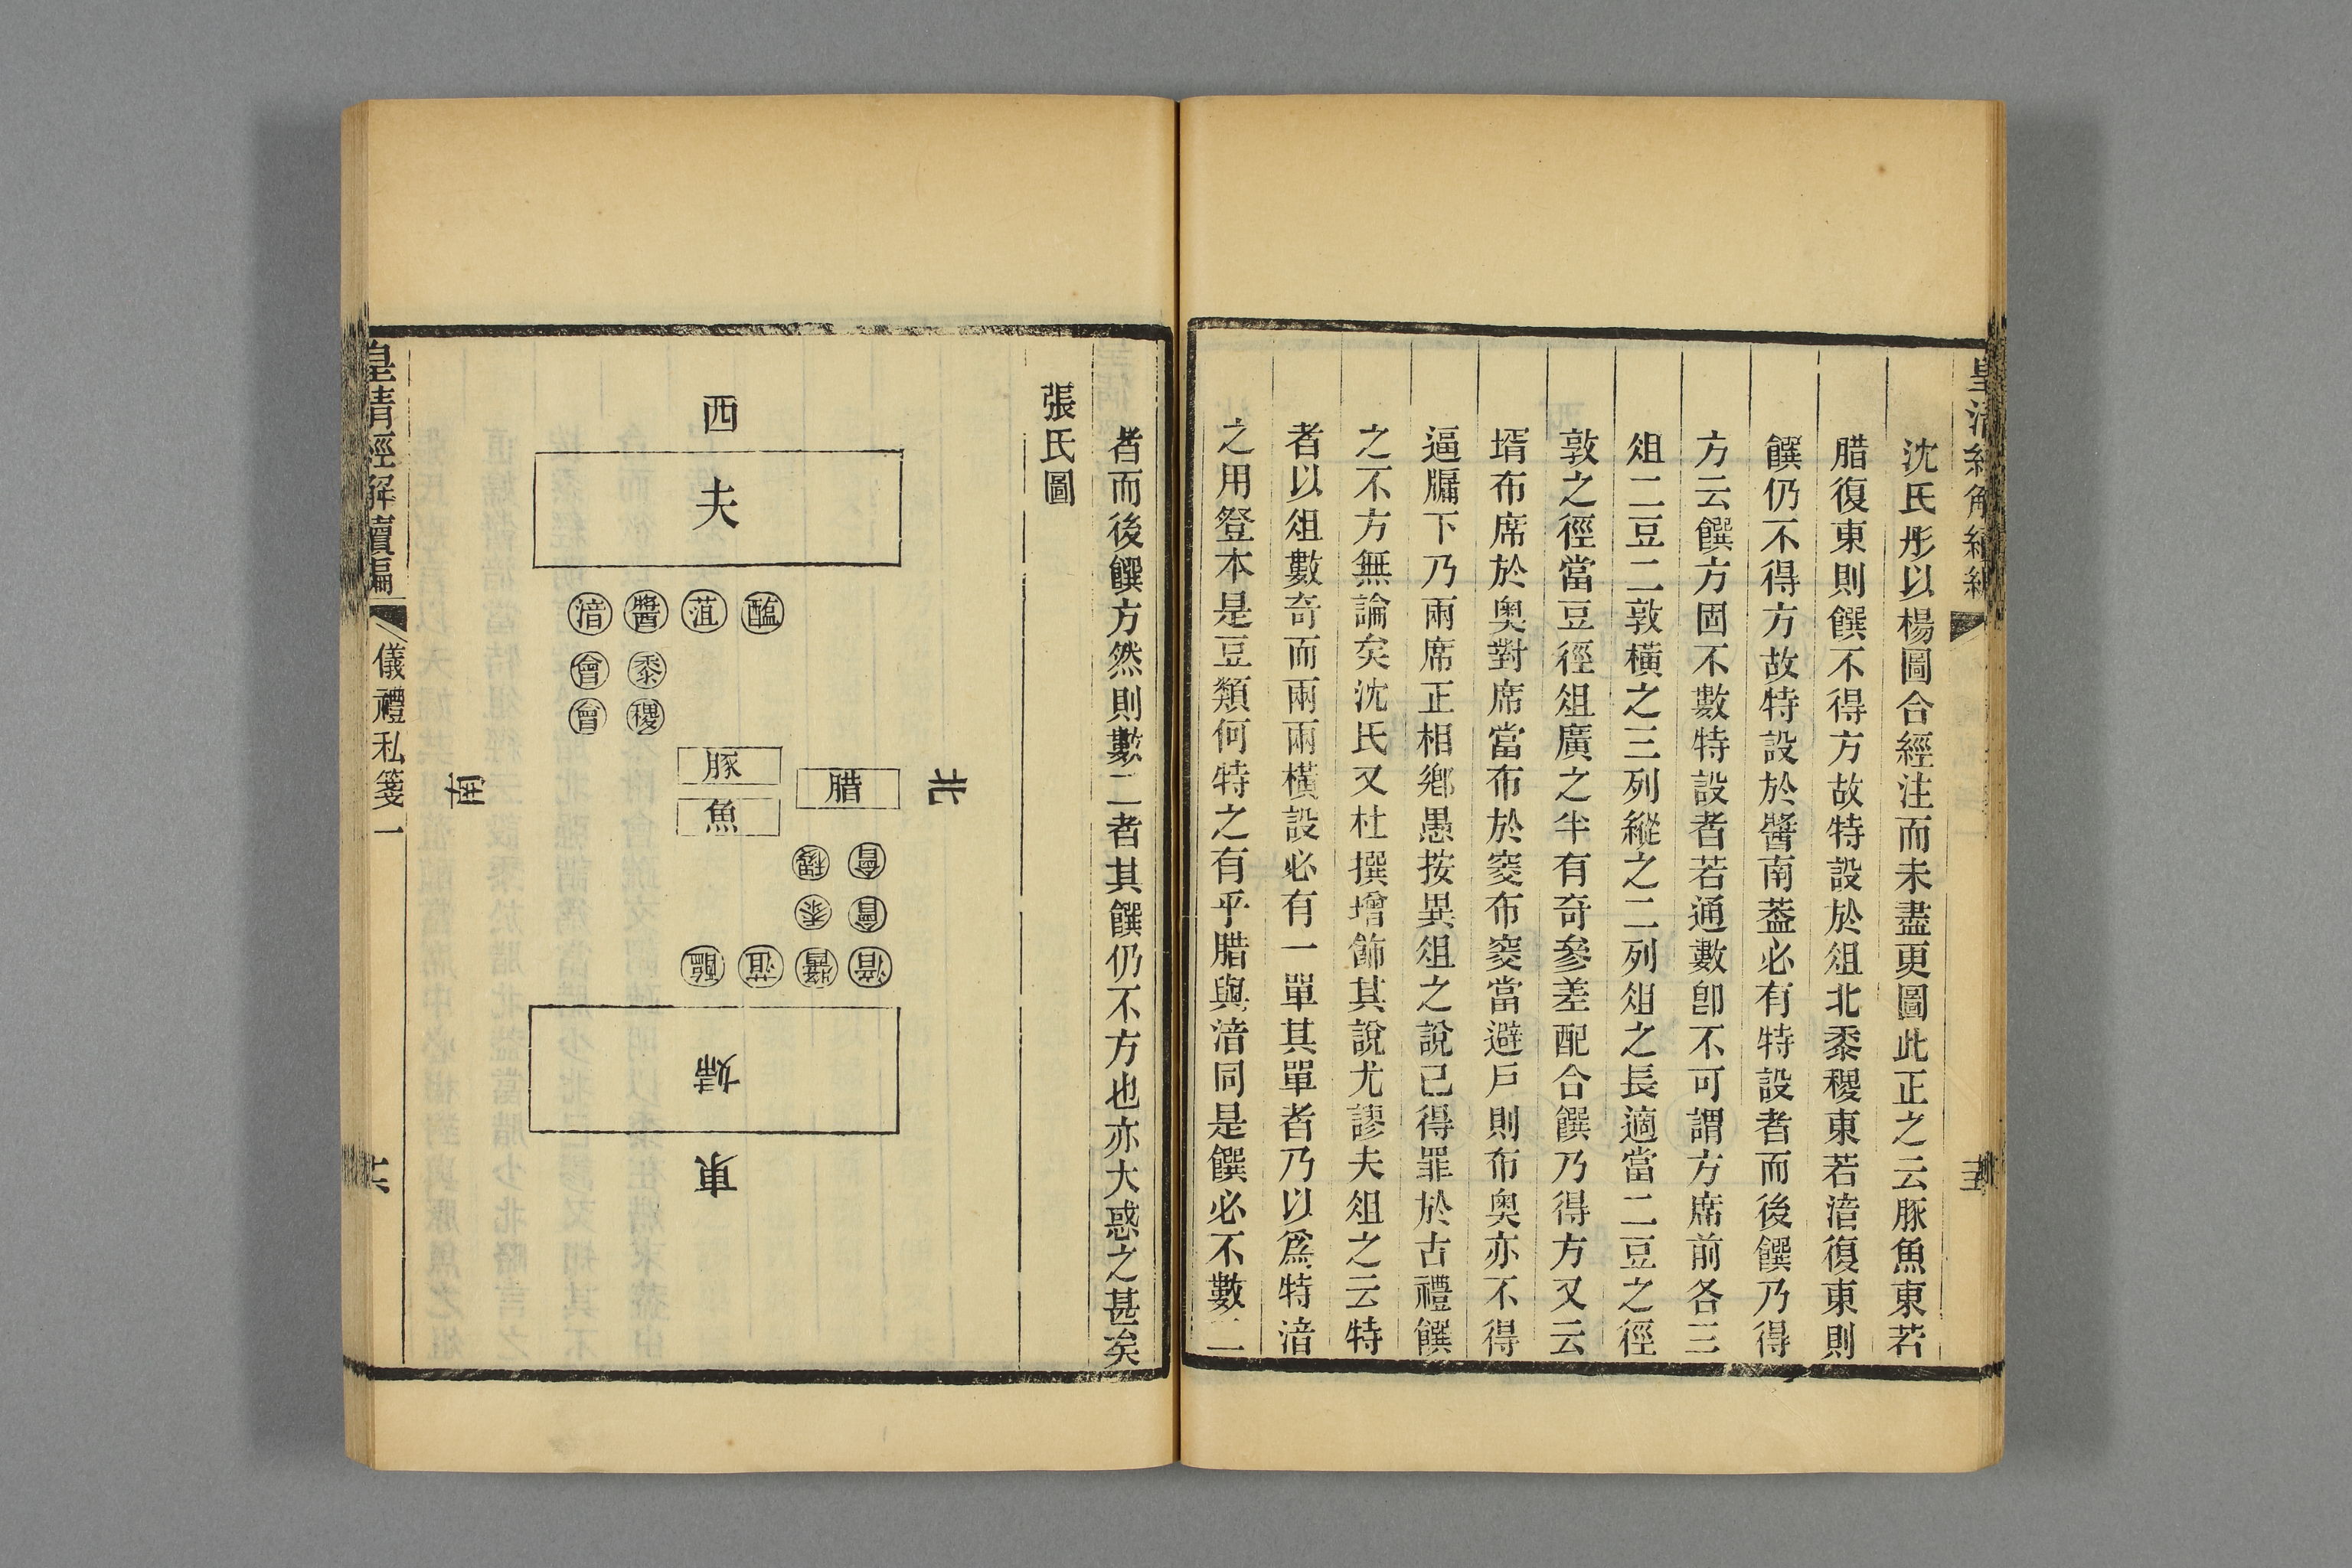 沈氏彤以楊圖合經注而未盡更圖此正之云豚魚東若
腊復東則饌不得方故特設於俎北黍稷東若湆復東則
饌仍不得方故特設於醬南葢必有特設者而後饌乃得
方云饌方固不數特設者若通數卽不可謂方席前各三
俎二豆二敦橫之三列縱之二列俎之長適當二豆之徑
敦之徑當豆徑俎廣之半有奇參差配合饌乃得方又云
壻布席於奧對席當布於窔布窔當避戶則布奧亦不得
逼牖下乃兩席正相鄉愚按異俎之說已得罪於古禮饌
之不方無論矣沈氏又杜撰增飾其說尤謬夫俎之云特
者以俎數奇而兩兩橫設必有一單其單者乃以爲特湆
之用豋本是豆類何特之有乎腊與湆同是饌必不數二
者而後饌方然則數二者其饌仍不方也亦大惑之甚矣
張氏圖
西
夫
湆 醬 菹 醢
會 黍
會 稷
豚
魚
腊
北
南
稷 會
黍 會
醢 菹 醬 湆
婦
東
皇清經解續編
儀禮私箋一